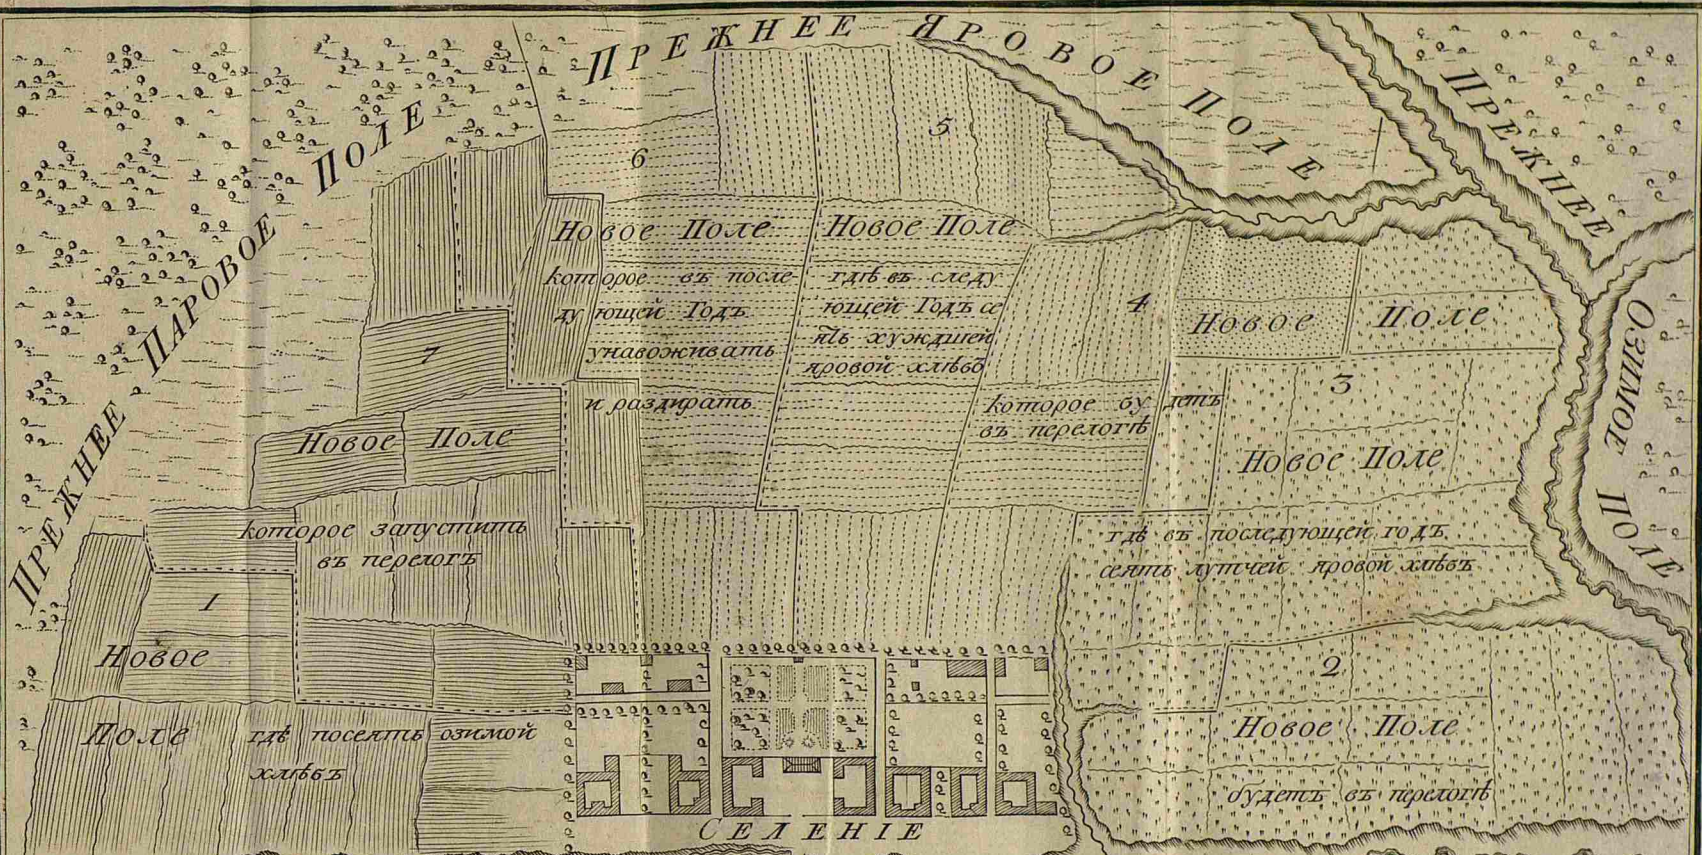 ПРЕЖНЕЕ ПАРОВОЕ ПОЛЕ
ПРЕЖНЕЕ ЯРОВОЕ ПОЛЕ
ПРЕЖНЕЕ ОЗИМОЕ ПОЛЕ
6
Новое Поле
которое въ после-
дующей Годъ
унавоживать
и раздирать
5
Новое Поле
гдѣ въ следу
ющей Годъ се
ять хуждшей
яровой хлѣбъ
4
Новое Поле
которое будетъ
въ перелогѣ
3
Новое Поле
гдѣ въ последующей годъ
сеять лутчей яровой хлѣбъ
7
Новое Поле
которое запустить
въ перелогъ
1
Новое
Поле гдѣ посеять озимой
хлѣбъ
2
Новое Поле
будетъ въ перелогѣ
СЕЛЕНІЕ